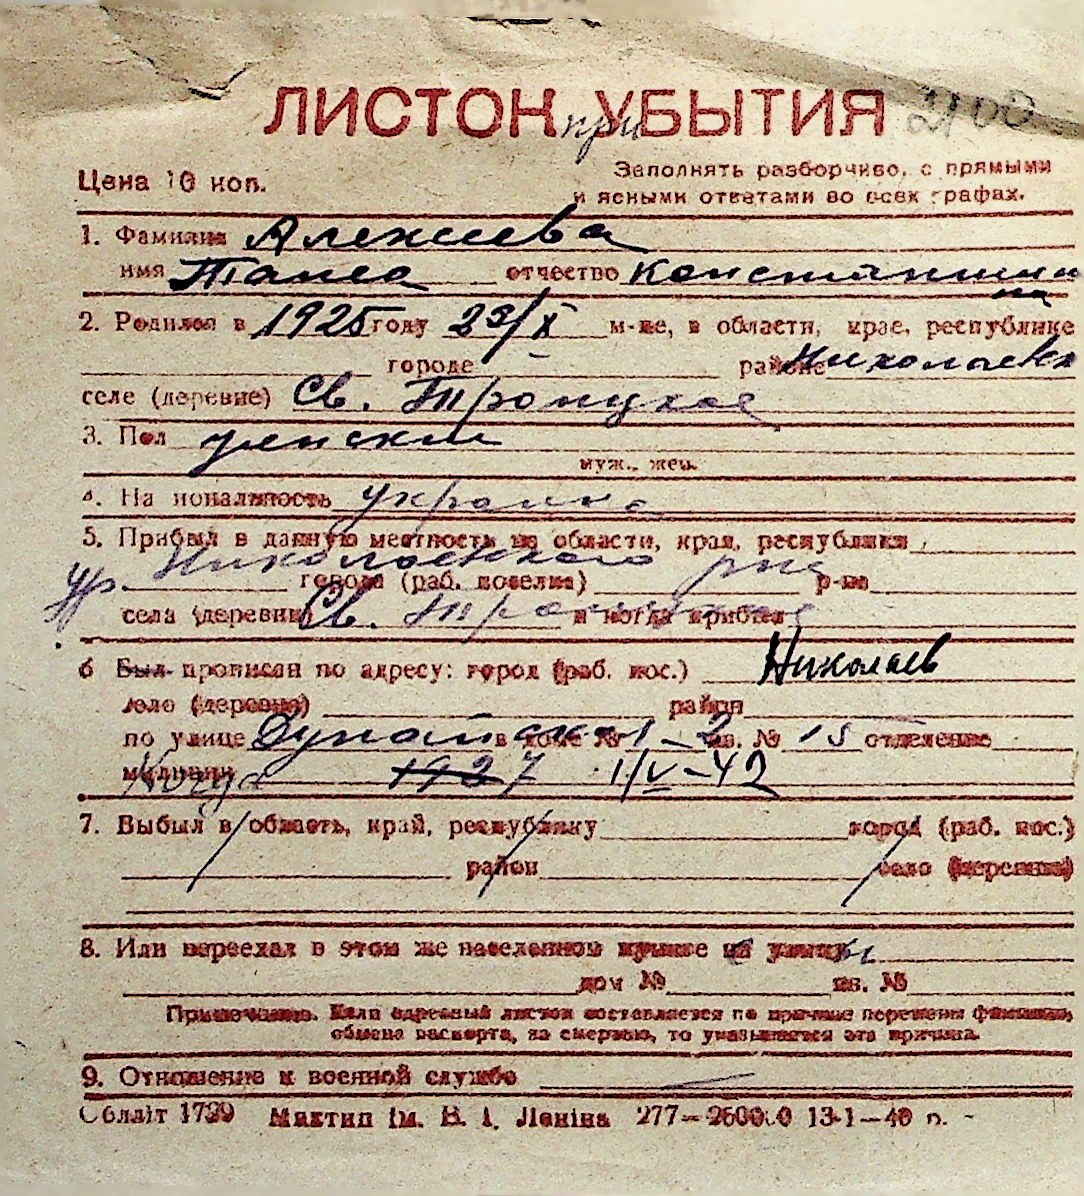 ЛИСТОК приУБЫТИЯ 2100
Цена 10 коп.
Заполнять разборчиво, с прямыми
и ясными ответами во всех графах.
1. Фамилия Алексеева
имя Таиса отчество Константинов
на
2. Родился в 1925 году 23/X м-це, в области, крае, республике
городе районе Николаевск
селе (деревне) Св. Троицкое
3. Пол женский
муж., жен.
4. Национальность украинка
5. Прибыл в данную местность из области, края, республики
Николаевского рна
ур. города (раб. поселка) р-на
села (деревни) Св. Троицкое и когда прибыл
6 Был прописан по адресу: город (раб. пос.) Николаев
село (деревня) район
по улице Дунайская в доме № 1-2 кв. № 15 отделение
милиции Когда 1927 1/V-42
7. Выбыл в область, край, республику город (раб. пос.)
район село (деревня)
8. Или переехал в этом же населенном пункте с улицы
дом № кв. №
Примечание. Если адресный листок составляется по причине перемены фамилии,
обмена паспорта, за смертью, то указывается эта причина.
9. Отношение к военной службе
Облліт 1729 Миктип ім. В. І. Леніна 277—260000 13-1—40 р.